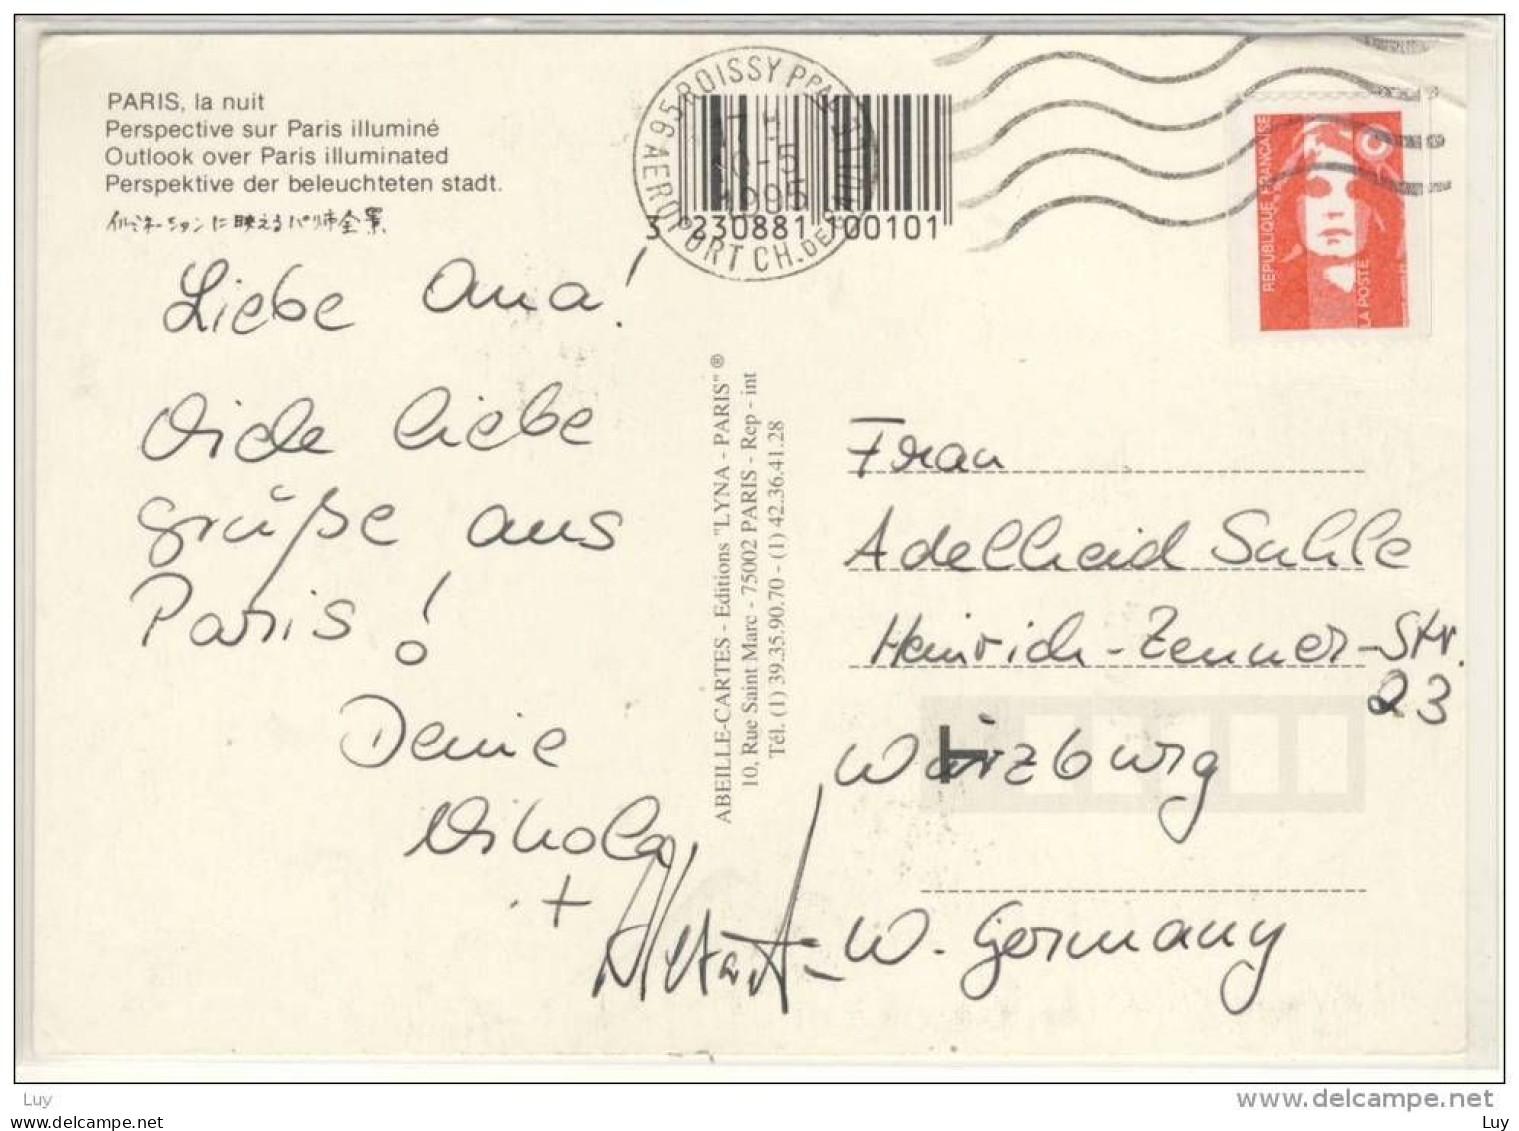 PARIS, la nuit
Perspective sur Paris illuminé
Outlook over Paris illuminated
Perspektive der beleuchteten stadt.
イルミネーションに映えるパリ市全景
95 ROISSY PPAL
17 H
1995
AEROPORT CH. DE
3 230881 100101
REPUBLIQUE FRANÇAISE
LA POSTE
Liebe Ana!
Viele liebe
Grüße aus
Paris!
Deine
Nikola
+
ABEILLE-CARTES - Editions "LYNA - PARIS"®
10, Rue Saint Marc - 75002 PARIS - Rep - int
Tél. (1) 39.35.90.70 - (1) 42.36.41.28
Frau
Adelheid
Heinrich-Zenner-Str.
23
Würzburg
W. Germany
Luy
www.delcampe.net
www.delcampe.net
Luy